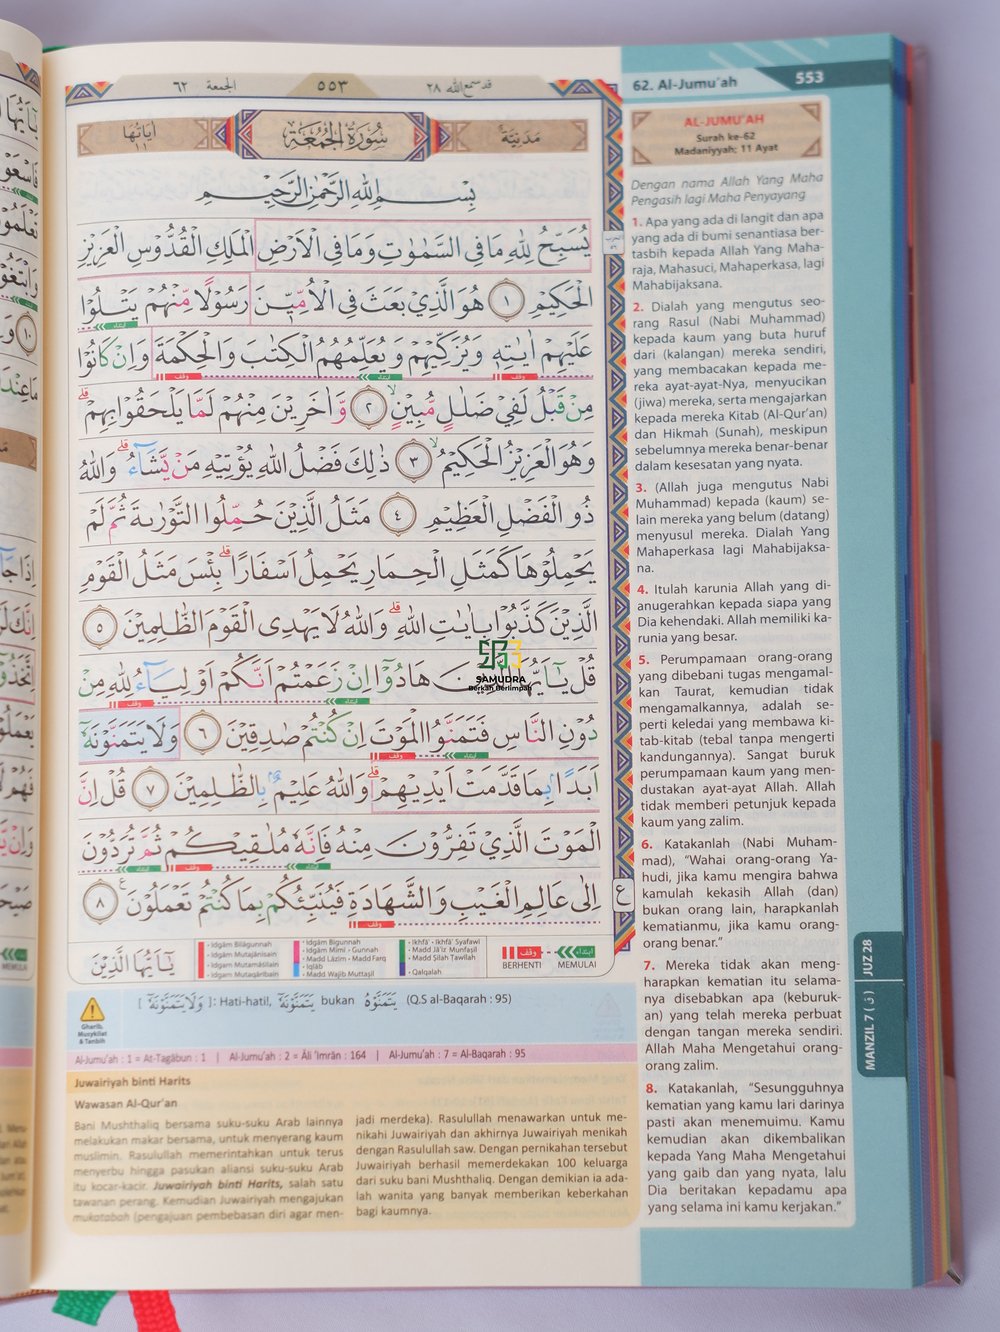 قد سمع الله ٢٨
٥٥٣
الجمعة ٦٢
مَدَنِيَّة
سُوْرَةُ الْجُمُعَةِ
اٰيَاتُهَا ١١
بِسْمِ اللّٰهِ الرَّحْمٰنِ الرَّحِيْمِ
يُسَبِّحُ لِلّٰهِ مَا فِى السَّمٰوٰتِ وَمَا فِى الْاَرْضِ الْمَلِكِ الْقُدُّوْسِ الْعَزِيْزِ
الْحَكِيْمِ ١ هُوَ الَّذِيْ بَعَثَ فِى الْاُمِّيّٖنَ رَسُوْلًا مِّنْهُمْ يَتْلُوْا
عَلَيْهِمْ اٰيٰتِهٖ وَيُزَكِّيْهِمْ وَيُعَلِّمُهُمُ الْكِتٰبَ وَالْحِكْمَةَ وَاِنْ كَانُوْا
مِنْ قَبْلُ لَفِيْ ضَلٰلٍ مُّبِيْنٍۙ ٢ وَّاٰخَرِيْنَ مِنْهُمْ لَمَّا يَلْحَقُوْا بِهِمْۗ
وَهُوَ الْعَزِيْزُ الْحَكِيْمُۙ ٣ ذٰلِكَ فَضْلُ اللّٰهِ يُؤْتِيْهِ مَنْ يَّشَاۤءُۗ وَاللّٰهُ
ذُو الْفَضْلِ الْعَظِيْمِ ٤ مَثَلُ الَّذِيْنَ حُمِّلُوا التَّوْرٰىةَ ثُمَّ لَمْ
يَحْمِلُوْهَا كَمَثَلِ الْحِمَارِ يَحْمِلُ اَسْفَارًاۗ بِئْسَ مَثَلُ الْقَوْمِ
الَّذِيْنَ كَذَّبُوْا بِاٰيٰتِ اللّٰهِۗ وَاللّٰهُ لَا يَهْدِى الْقَوْمَ الظّٰلِمِيْنَ ٥
قُلْ يٰٓاَيُّهَا الَّذِيْنَ هَادُوْٓا اِنْ زَعَمْتُمْ اَنَّكُمْ اَوْلِيَاۤءُ لِلّٰهِ مِنْ
دُوْنِ النَّاسِ فَتَمَنَّوُا الْمَوْتَ اِنْ كُنْتُمْ صٰدِقِيْنَ ٦ وَلَا يَتَمَنَّوْنَهٗٓ
اَبَدًاۢ بِمَا قَدَّمَتْ اَيْدِيْهِمْۗ وَاللّٰهُ عَلِيْمٌۢ بِالظّٰلِمِيْنَ ٧ قُلْ اِنَّ
الْمَوْتَ الَّذِيْ تَفِرُّوْنَ مِنْهُ فَاِنَّهٗ مُلٰقِيْكُمْ ثُمَّ تُرَدُّوْنَ
اِلٰى عَالِمِ الْغَيْبِ وَالشَّهَادَةِ فَيُنَبِّئُكُمْ بِمَا كُنْتُمْ تَعْمَلُوْنَ ࣖ ٨
ع
SAMUDRA
Berkah Berlimpah
يٰٓاَيُّهَا الَّذِيْنَ
• Idgām Bilāgunnah
• Idgām Mutajānisain
• Idgam Mutamāṡilain
• Idgam Mutaqāribain
• Idgām Bigunnah
• Idgām Mīmī - Gunnah
• Madd Lāzim - Madd Farq
• Iqlāb
• Madd Wajib Muttaṣil
• Ikhfā' - Ikhfā' Syafawī
• Madd Jā'iz Munfaṣil
• Madd Ṣilah Ṭawīlah
• Qalqalah
وقف
BERHENTI
ابتداء
MEMULAI
Gharib,
Musykilat
& Tanbih
[ وَلَا يَتَمَنَّوْنَهٗٓ ]: Hati-hati!, يَتَمَنَّوْنَهٗٓ bukan يَتَمَنَّوْهُ (Q.S al-Baqarah : 95)
Al-Jumu'ah : 1 = At-Tagābun : 1 | Al-Jumu'ah : 2 = Āli 'Imrān : 164 | Al-Jumu'ah : 7 = Al-Baqarah : 95
Juwairiyah binti Harits
Wawasan Al-Qur'an
Bani Mushthaliq bersama suku-suku Arab lainnya
melakukan makar bersama, untuk menyerang kaum
muslimin. Rasulullah memerintahkan untuk terus
menyerbu hingga pasukan aliansi suku-suku Arab
itu kocar-kacir. Juwairiyah binti Harits, salah satu
tawanan perang. Kemudian Juwairiyah mengajukan
mukatabah (pengajuan pembebasan diri agar men-
jadi merdeka). Rasulullah menawarkan untuk me-
nikahi Juwairiyah dan akhirnya Juwairiyah menikah
dengan Rasulullah saw. Dengan pernikahan tersebut
Juwairiyah berhasil memerdekakan 100 keluarga
dari suku bani Mushthaliq. Dengan demikian ia ada-
lah wanita yang banyak memberikan keberkahan
bagi kaumnya.
62. Al-Jumu'ah 553
AL-JUMU'AH
Surah ke-62
Madaniyyah: 11 Ayat
Dengan nama Allah Yang Maha
Pengasih lagi Maha Penyayang
1. Apa yang ada di langit dan apa
yang ada di bumi senantiasa ber-
tasbih kepada Allah Yang Maha-
raja, Mahasuci, Mahaperkasa, lagi
Mahabijaksana.
2. Dialah yang mengutus seo-
rang Rasul (Nabi Muhammad)
kepada kaum yang buta huruf
dari (kalangan) mereka sendiri,
yang membacakan kepada me-
reka ayat-ayat-Nya, menyucikan
(jiwa) mereka, serta mengajarkan
kepada mereka Kitab (Al-Qur'an)
dan Hikmah (Sunah), meskipun
sebelumnya mereka benar-benar
dalam kesesatan yang nyata.
3. (Allah juga mengutus Nabi
Muhammad) kepada (kaum) se-
lain mereka yang belum (datang)
menyusul mereka. Dialah Yang
Mahaperkasa lagi Mahabijaksa-
na.
4. Itulah karunia Allah yang di-
anugerahkan kepada siapa yang
Dia kehendaki. Allah memiliki ka-
runia yang besar.
5. Perumpamaan orang-orang
yang dibebani tugas mengamal-
kan Taurat, kemudian tidak
mengamalkannya, adalah se-
perti keledai yang membawa ki-
tab-kitab (tebal tanpa mengerti
kandungannya). Sangat buruk
perumpamaan kaum yang men-
dustakan ayat-ayat Allah. Allah
tidak memberi petunjuk kepada
kaum yang zalim.
6. Katakanlah (Nabi Muham-
mad), "Wahai orang-orang Ya-
hudi, jika kamu mengira bahwa
kamulah kekasih Allah (dan)
bukan orang lain, harapkanlah
kematianmu, jika kamu orang-
orang benar."
7. Mereka tidak akan meng-
harapkan kematian itu selama-
nya disebabkan apa (keburuk-
an) yang telah mereka perbuat
dengan tangan mereka sendiri.
Allah Maha Mengetahui orang-
orang zalim.
8. Katakanlah, "Sesungguhnya
kematian yang kamu lari darinya
pasti akan menemuimu. Kamu
kemudian akan dikembalikan
kepada Yang Maha Mengetahui
yang gaib dan yang nyata, lalu
Dia beritakan kepadamu apa
yang selama ini kamu kerjakan."
JUZ 28
MANZIL 7 ( ق )